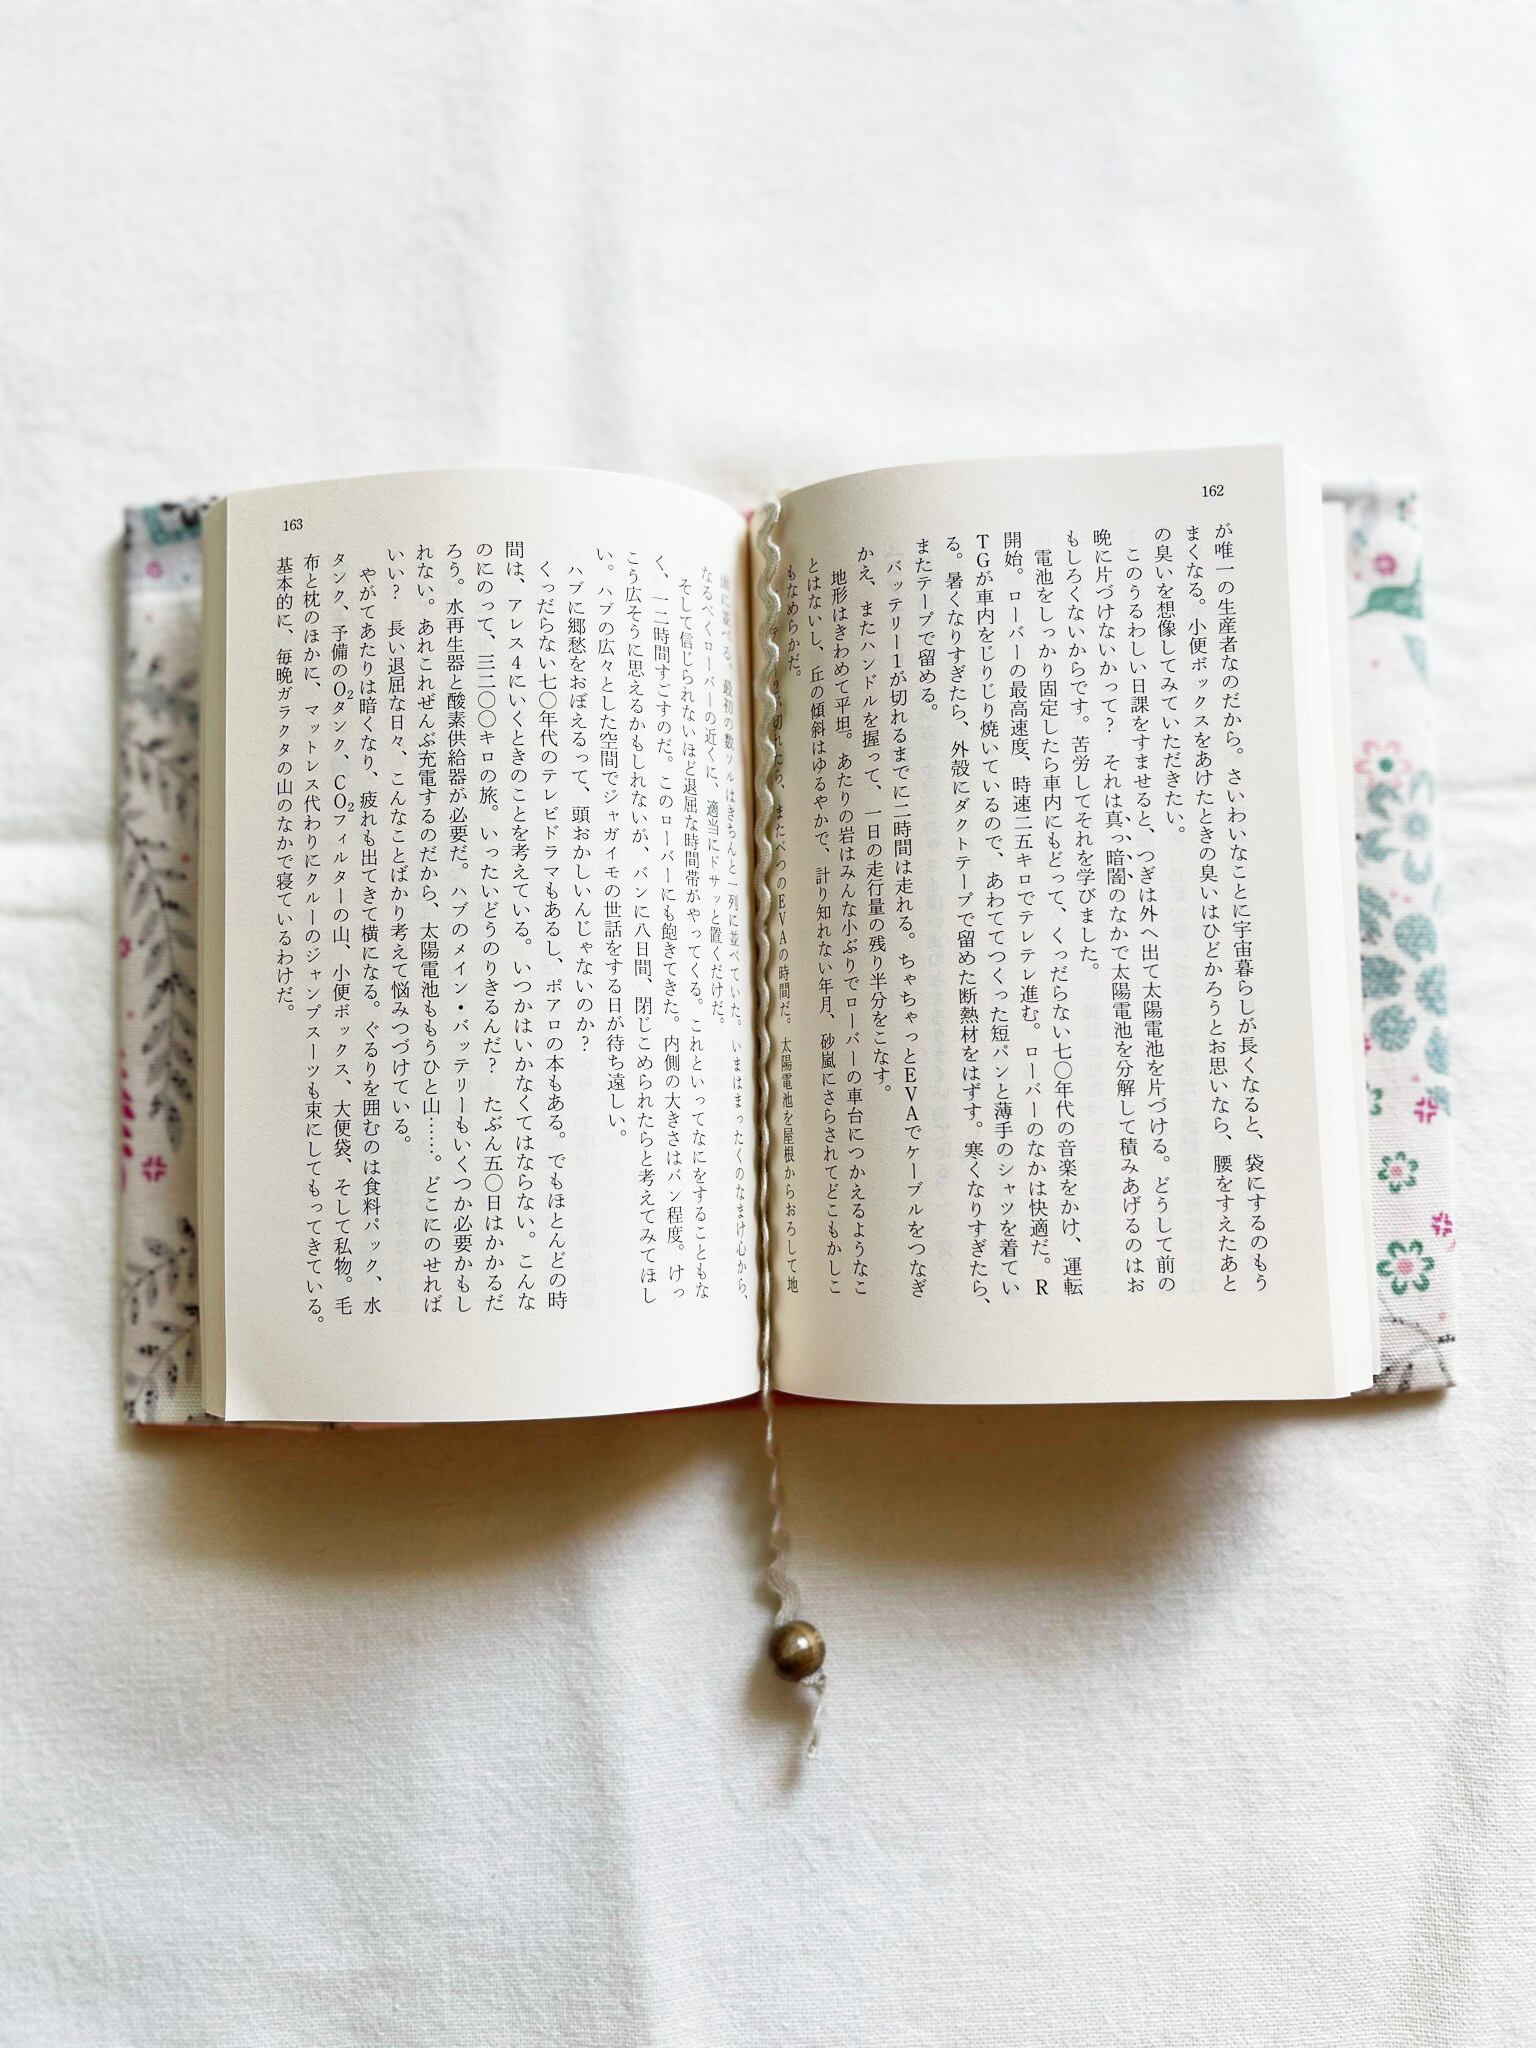 162
が唯一の生産者なのだから。さいわいなことに宇宙暮らしが長くなると、袋にするのもう
まくなる。小便ボックスをあけたときの臭いはひどかろうとお思いなら、腰をすえたあと
の臭いを想像してみていただきたい。
このうるわしい日課をすませると、つぎは外へ出て太陽電池を片づける。どうして前の
晩に片づけないかって？ それは真っ暗闇のなかで太陽電池を分解して積みあげるのはお
もしろくないからです。苦労してそれを学びました。
電池をしっかり固定したら車内にもどって、くっだらない七〇年代の音楽をかけ、運転
開始。ローバーの最高速度、時速二五キロでテレテレ進む。ローバーのなかは快適だ。R
TGが車内をじりじり焼いているので、あわててつくった短パンと薄手のシャツを着てい
る。暑くなりすぎたら、外殻にダクトテープで留めた断熱材をはずす。寒くなりすぎたら、
またテープで留める。
バッテリー1が切れるまでに二時間は走れる。ちゃちゃっとEVAでケーブルをつなぎ
かえ、またハンドルを握って、一日の走行量の残り半分をこなす。
地形はきわめて平坦。あたりの岩はみんな小ぶりでローバーの車台につかえるようなこ
とはないし、丘の傾斜はゆるやかで、計り知れない年月、砂嵐にさらされてどこもかしこ
もなめらかだ。
2が切れたら、またべつのEVAの時間だ。太陽電池を屋根からおろして地
163
面に並べる。最初の数ソルはきちんと一列に並べていた。いまはまったくのなまけ心から、
なるべくローバーの近くに、適当にドサッと置くだけだ。
そして信じられないほど退屈な時間帯がやってくる。これといってなにをすることもな
く、一二時間すごすのだ。このローバーにも飽きてきた。内側の大きさはバン程度。けっ
こう広そうに思えるかもしれないが、バンに八日間、閉じこめられたらと考えてみてほし
い。ハブの広々とした空間でジャガイモの世話をする日が待ち遠しい。
ハブに郷愁をおぼえるって、頭おかしいんじゃないのか？
くっだらない七〇年代のテレビドラマもあるし、ポアロの本もある。でもほとんどの時
間は、アレス4にいくときのことを考えている。いつかはいかなくてはならない。こんな
のにのって、三二〇〇キロの旅。いったいどうのりきるんだ？ たぶん五〇日はかかるだ
ろう。水再生器と酸素供給器が必要だ。ハブのメイン・バッテリーもいくつか必要かもし
れない。あれこれぜんぶ充電するのだから、太陽電池ももうひと山……。どこにのせれば
いい？ 長い退屈な日々、こんなことばかり考えて悩みつづけている。
やがてあたりは暗くなり、疲れも出てきて横になる。ぐるりを囲むのは食料パック、水
タンク、予備のO₂タンク、CO₂フィルターの山、小便ボックス、大便袋、そして私物。毛
布と枕のほかに、マットレス代わりにクルーのジャンプスーツも束にしてもってきている。
基本的に、毎晩ガラクタの山のなかで寝ているわけだ。